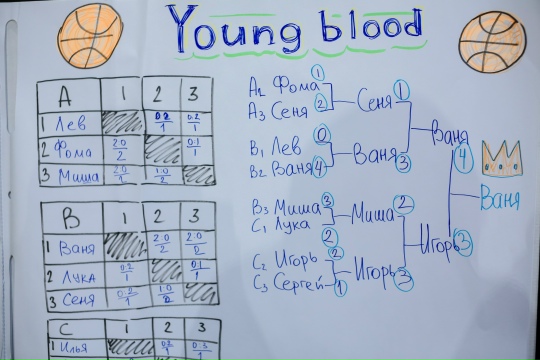 Young blood
A 1 2 3
1 Лев 0:2 0:2
1 1
2 Фома 2:0 0:1
2 1
3 Миша 2:0 1:0
1 2
B 1 2 3
1 Ваня 2:0 2:0
2 2
2 Лука 0:2 0:1
1 1
3 Сеня
C 1 2 3
1 Илья 0:2 0:3
1
A2 Фома 1
A3 Сеня 2
Сеня 1
B1 Лев 0
B2 Ваня 4
Ваня 3
Ваня 4
B3 Миша 3
C1 Лука 2
Миша 2
C2 Игорь 2
C3 Сергей 1
Игорь 3
Игорь 3
Ваня